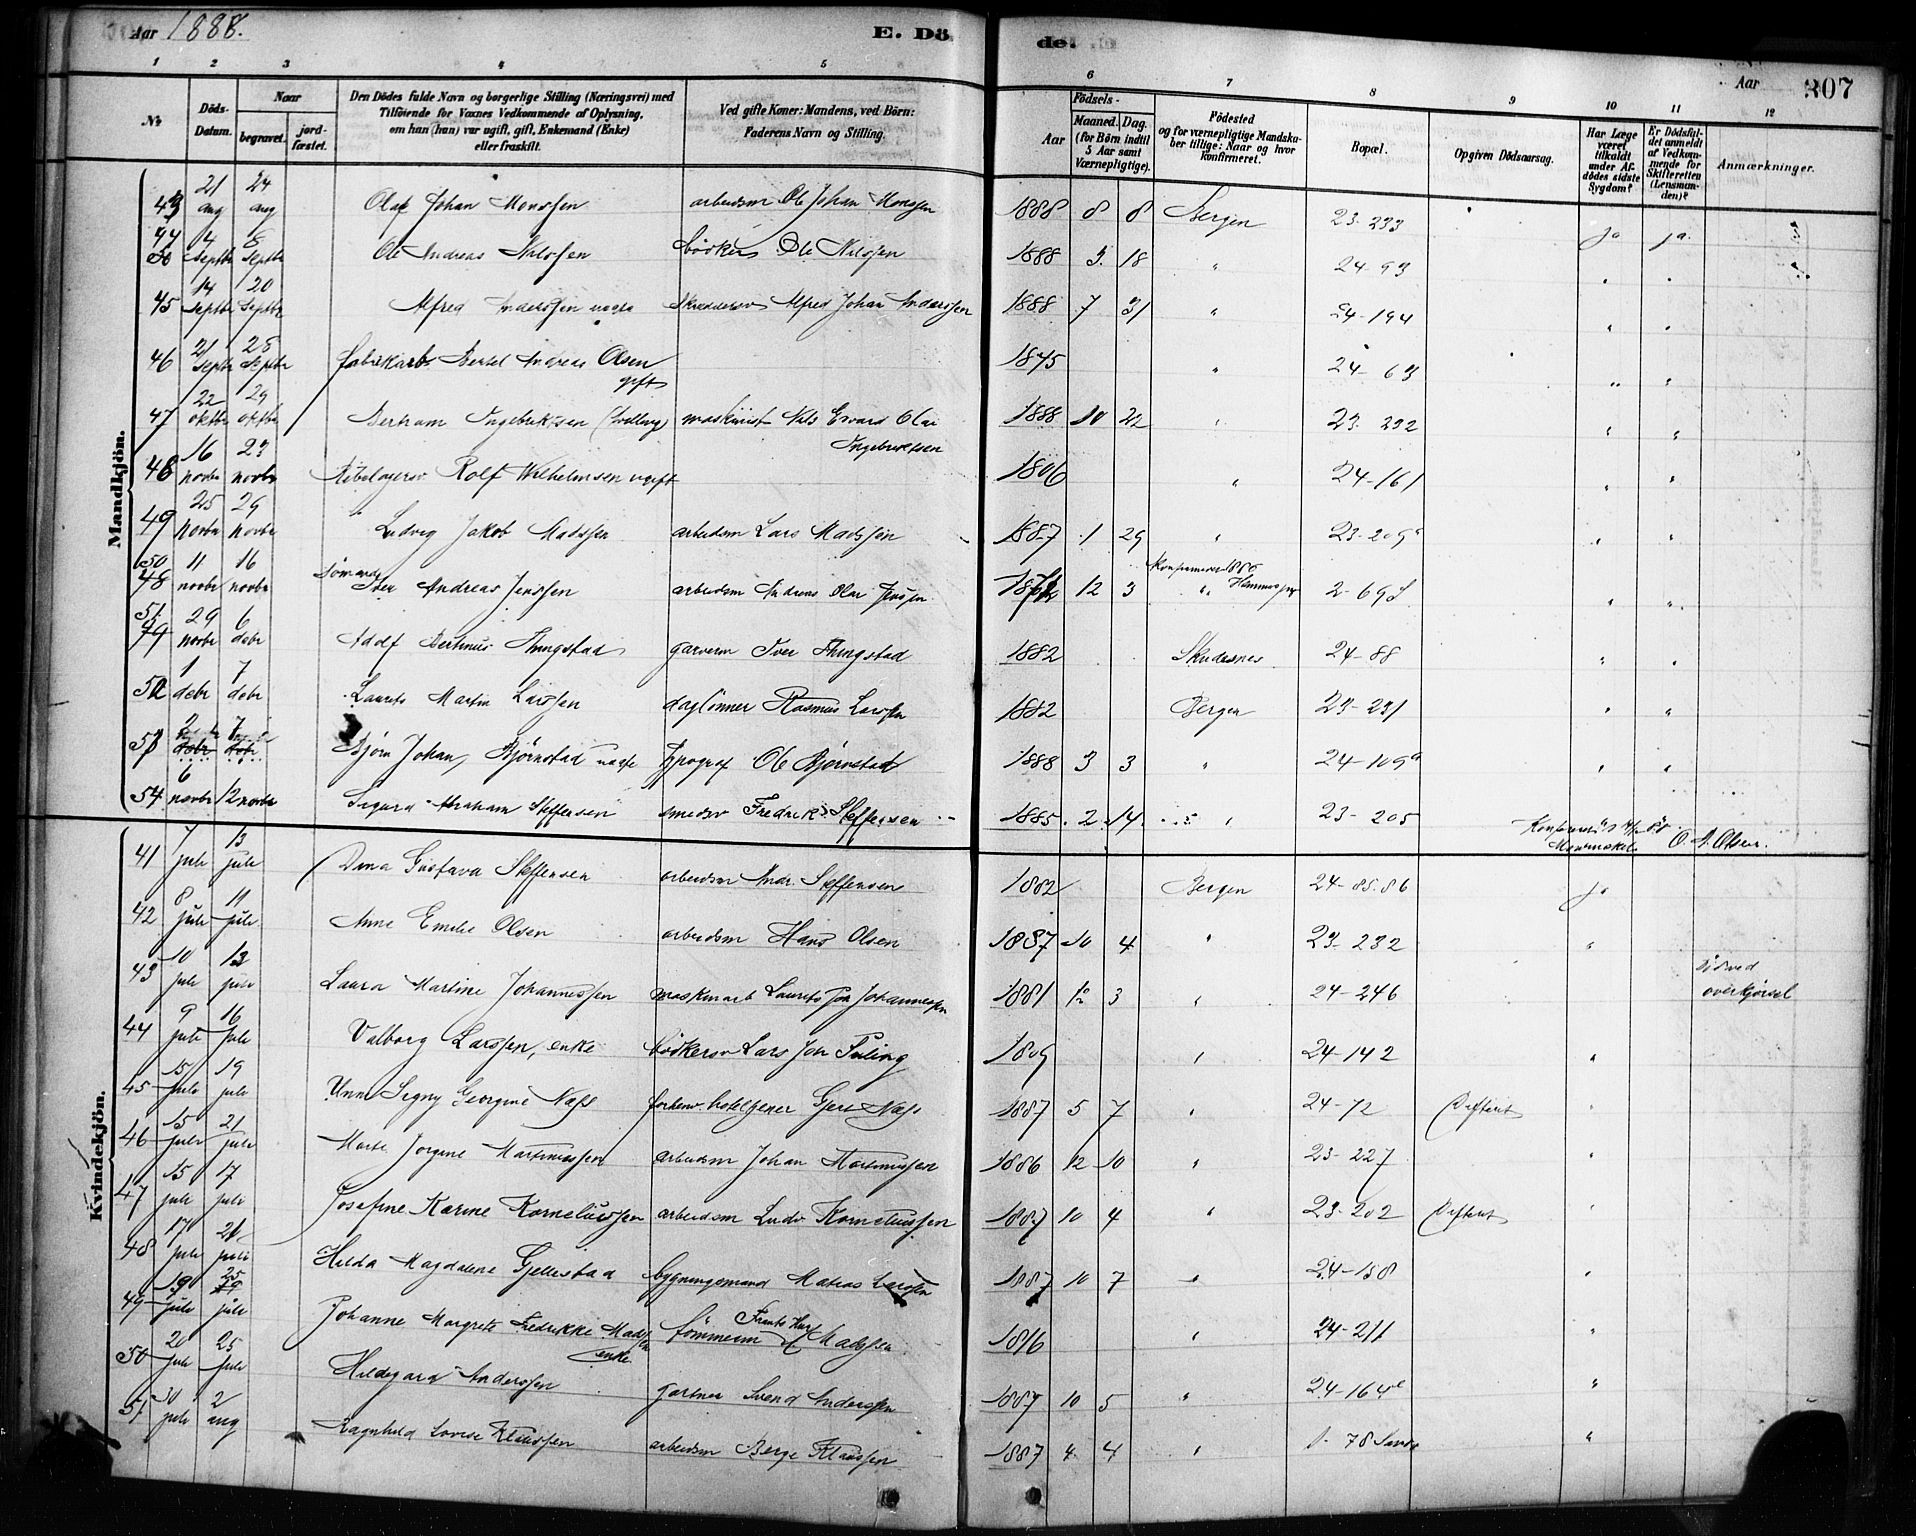 Aar 1888. E. Döde. Aar 307
1 2 3 4 5 6 7 8 9 10 11 12
No Döds-Datum. Naar begravet. jord-fæstet. Den Dödes fulde Navn og borgerlige Stilling (Næringsvei) med Tilföiende for Voxnes Vedkommende af Oplysning, om han (hun) var ugift, gift, Enkemand (Enke) eller fraskilt. Ved gifte Koner: Mandens, ved Börn: Faderens Navn og Stilling. Födsels- Aar Maaned. Dag. (for Börn indtil 5 Aar samt Værnepligtige). Födested og for værnepligtige Mandskaber tillige: Naar og hvor konfirmeret. Bopæl. Opgiven Dödsaarsag. Har Læge været tilkaldt under Afdödes sidste Sygdom? Er Dödsfaldet anmeldt af Vedkommende for Skifteretten (Lensmanden)? Anmærkninger.
Mandkjön.
43 21 aug 24 aug Olaf Johan Monssen arbeidsm Ole Johan Monssen 1888 8 8 Bergen 23-233 ja ja
44 4 septbr 8 septbr Ole Andreas Nilssen bödker Ole Nilssen 1888 3 18 " 24-93 " "
45 14 septbr 20 septbr Alfred Anderssen Alfred Johan Anderssen 1888 7 31 " 24-194 " "
46 21 septbr 28 septbr fabrikarb Bertel Andreas Olsen gift 1845 " 24-63 " "
47 22 oktbr 29 oktbr Bertram Ingebriktsen maskinist Nils Edvard Olai Ingebriktsen 1888 10 22 " 23-232 " "
48 16 novbr 23 novbr Rolf Wilhelmsen 1806 " 24-161 " "
49 25 novbr 29 novbr Ludvig Jakob Madssen arbeidsm Lars Madssen 1887 1 29 " 23-209a " "
50 11 novbr 16 novbr sömand Andreas Jenssen arbeidsm Andreas Olai Jenssen 12 3 " 2-69 " "
51 29 novbr 6 debr Adolf Bertinus garverm Iver 1882 Skudesnes 24-88 " "
52 1 debr 7 debr Laurits Martin Larssen daglönner Rasmus Larssen 1882 Bergen 23-231 " "
53 debr debr Bjørn Johan, Bjørnstad typograf Ole Bjørnstad 1888 3 3 " 24-109a " "
54 6 novbr 12 novbr Sigurd Abraham Steffensen smedsv Fredrik Steffensen 1885 2 14 " 23-205
O. A. Olsen.
Kvindekjön.
41 7 juli 13 juli Dina Gustava Steffensen arbeidsm Andr. Steffensen 1882 Bergen 24-85.86 ja
42 8 juli 11 juli Anne Emilie Olsen arbeidsm Hans Olsen 1887 10 4 " 23-232 "
43 10 juli 13 juli Laura Martine Johannessen maskinarb Laurits Joh Johannessen 1881 12 3 " 24-246 död ved overkjørsel
44 9 juli 16 juli Valborg Larssen, enke bödkersv Lars Joh 1809 " 24-142 "
45 15 juli 19 juli Unni Signy Georgine Næss forhenv. hoteltjener Gjert Næss 1887 5 7 " 24-72 Difterit "
46 15 juli 21 juli Marte Jorgine Martinussen arbeidsm Johan Martinussen 1886 12 10 " 23-227 "
47 15 juli 17 juli Josefine Karine Korneliussen arbeidsm Ludv Korneliussen 1887 10 4 " 23-202 Difterit "
48 17 juli 21 juli Hilda Magdalene Gjellestad bygningsmand Matias Larssen 1887 10 7 " 24-158 "
49 19 juli 25 juli Johanne Margrete Fredrikke Madssen enke tömmerm Madssen 1816 " 24-211 "
50 20 juli 25 juli Hildegard Anderssen gartner Svend Anderssen 1887 10 5 " 24-164e "
51 30 juli 2 aug Ragnhild Lovise Klaussen arbeidsm Berge Klaussen 1887 4 4 " 78 "